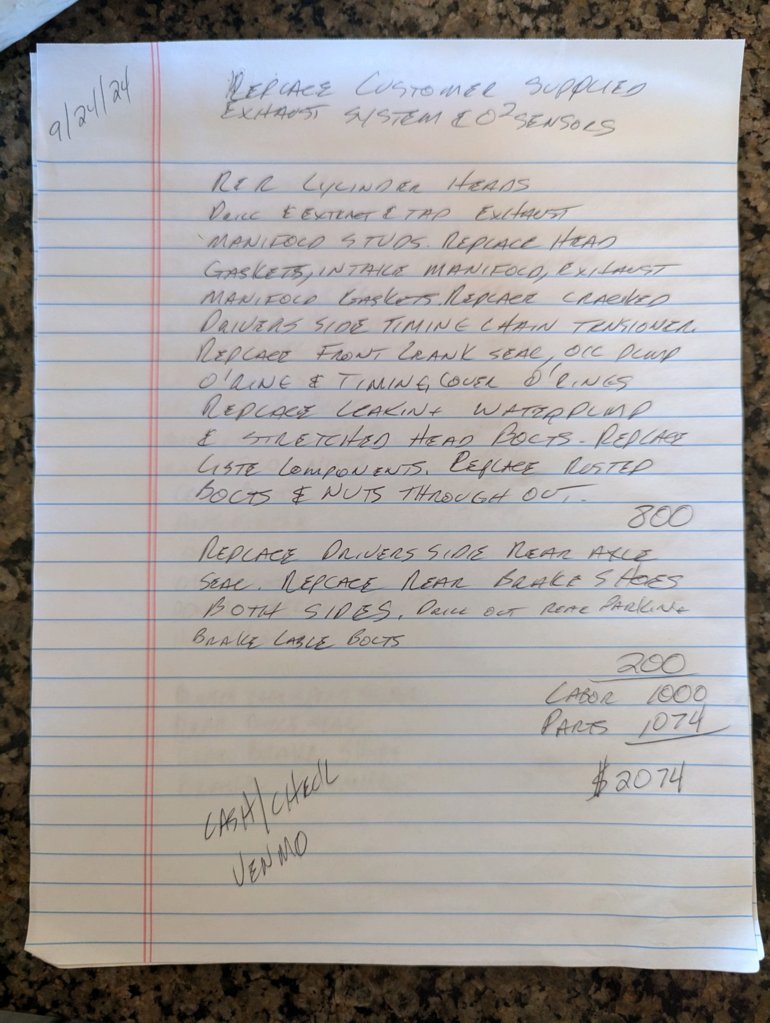 9/24/24
REPLACE CUSTOMER SUPPLIED
EXHAUST SYSTEM & O2 SENSORS
R&R CYLINDER HEADS
DRILL & EXTRACT & TAP EXHAUST
MANIFOLD STUDS. REPLACE HEAD
GASKETS, INTAKE MANIFOLD, EXHAUST
MANIFOLD GASKETS. REPLACE CRACKED
DRIVERS SIDE TIMING CHAIN TENSIONER.
REPLACE FRONT CRANK SEAL, OIL PUMP
O'RING & TIMING COVER O'RINGS
REPLACE LEAKING WATERPUMP
& STRETCHED HEAD BOLTS. REPLACE
COMPONENTS. REPLACE RUSTED
BOLTS & NUTS THROUGH OUT.
800
REPLACE DRIVERS SIDE REAR AXLE
SEAL. REPLACE REAR BRAKE SHOES
BOTH SIDES. DRILL OUT REAR PARKING
BRAKE CABLE BOLTS
200
LABOR 1000
PARTS 1074
$2074
CASH/CHECK
VENMO